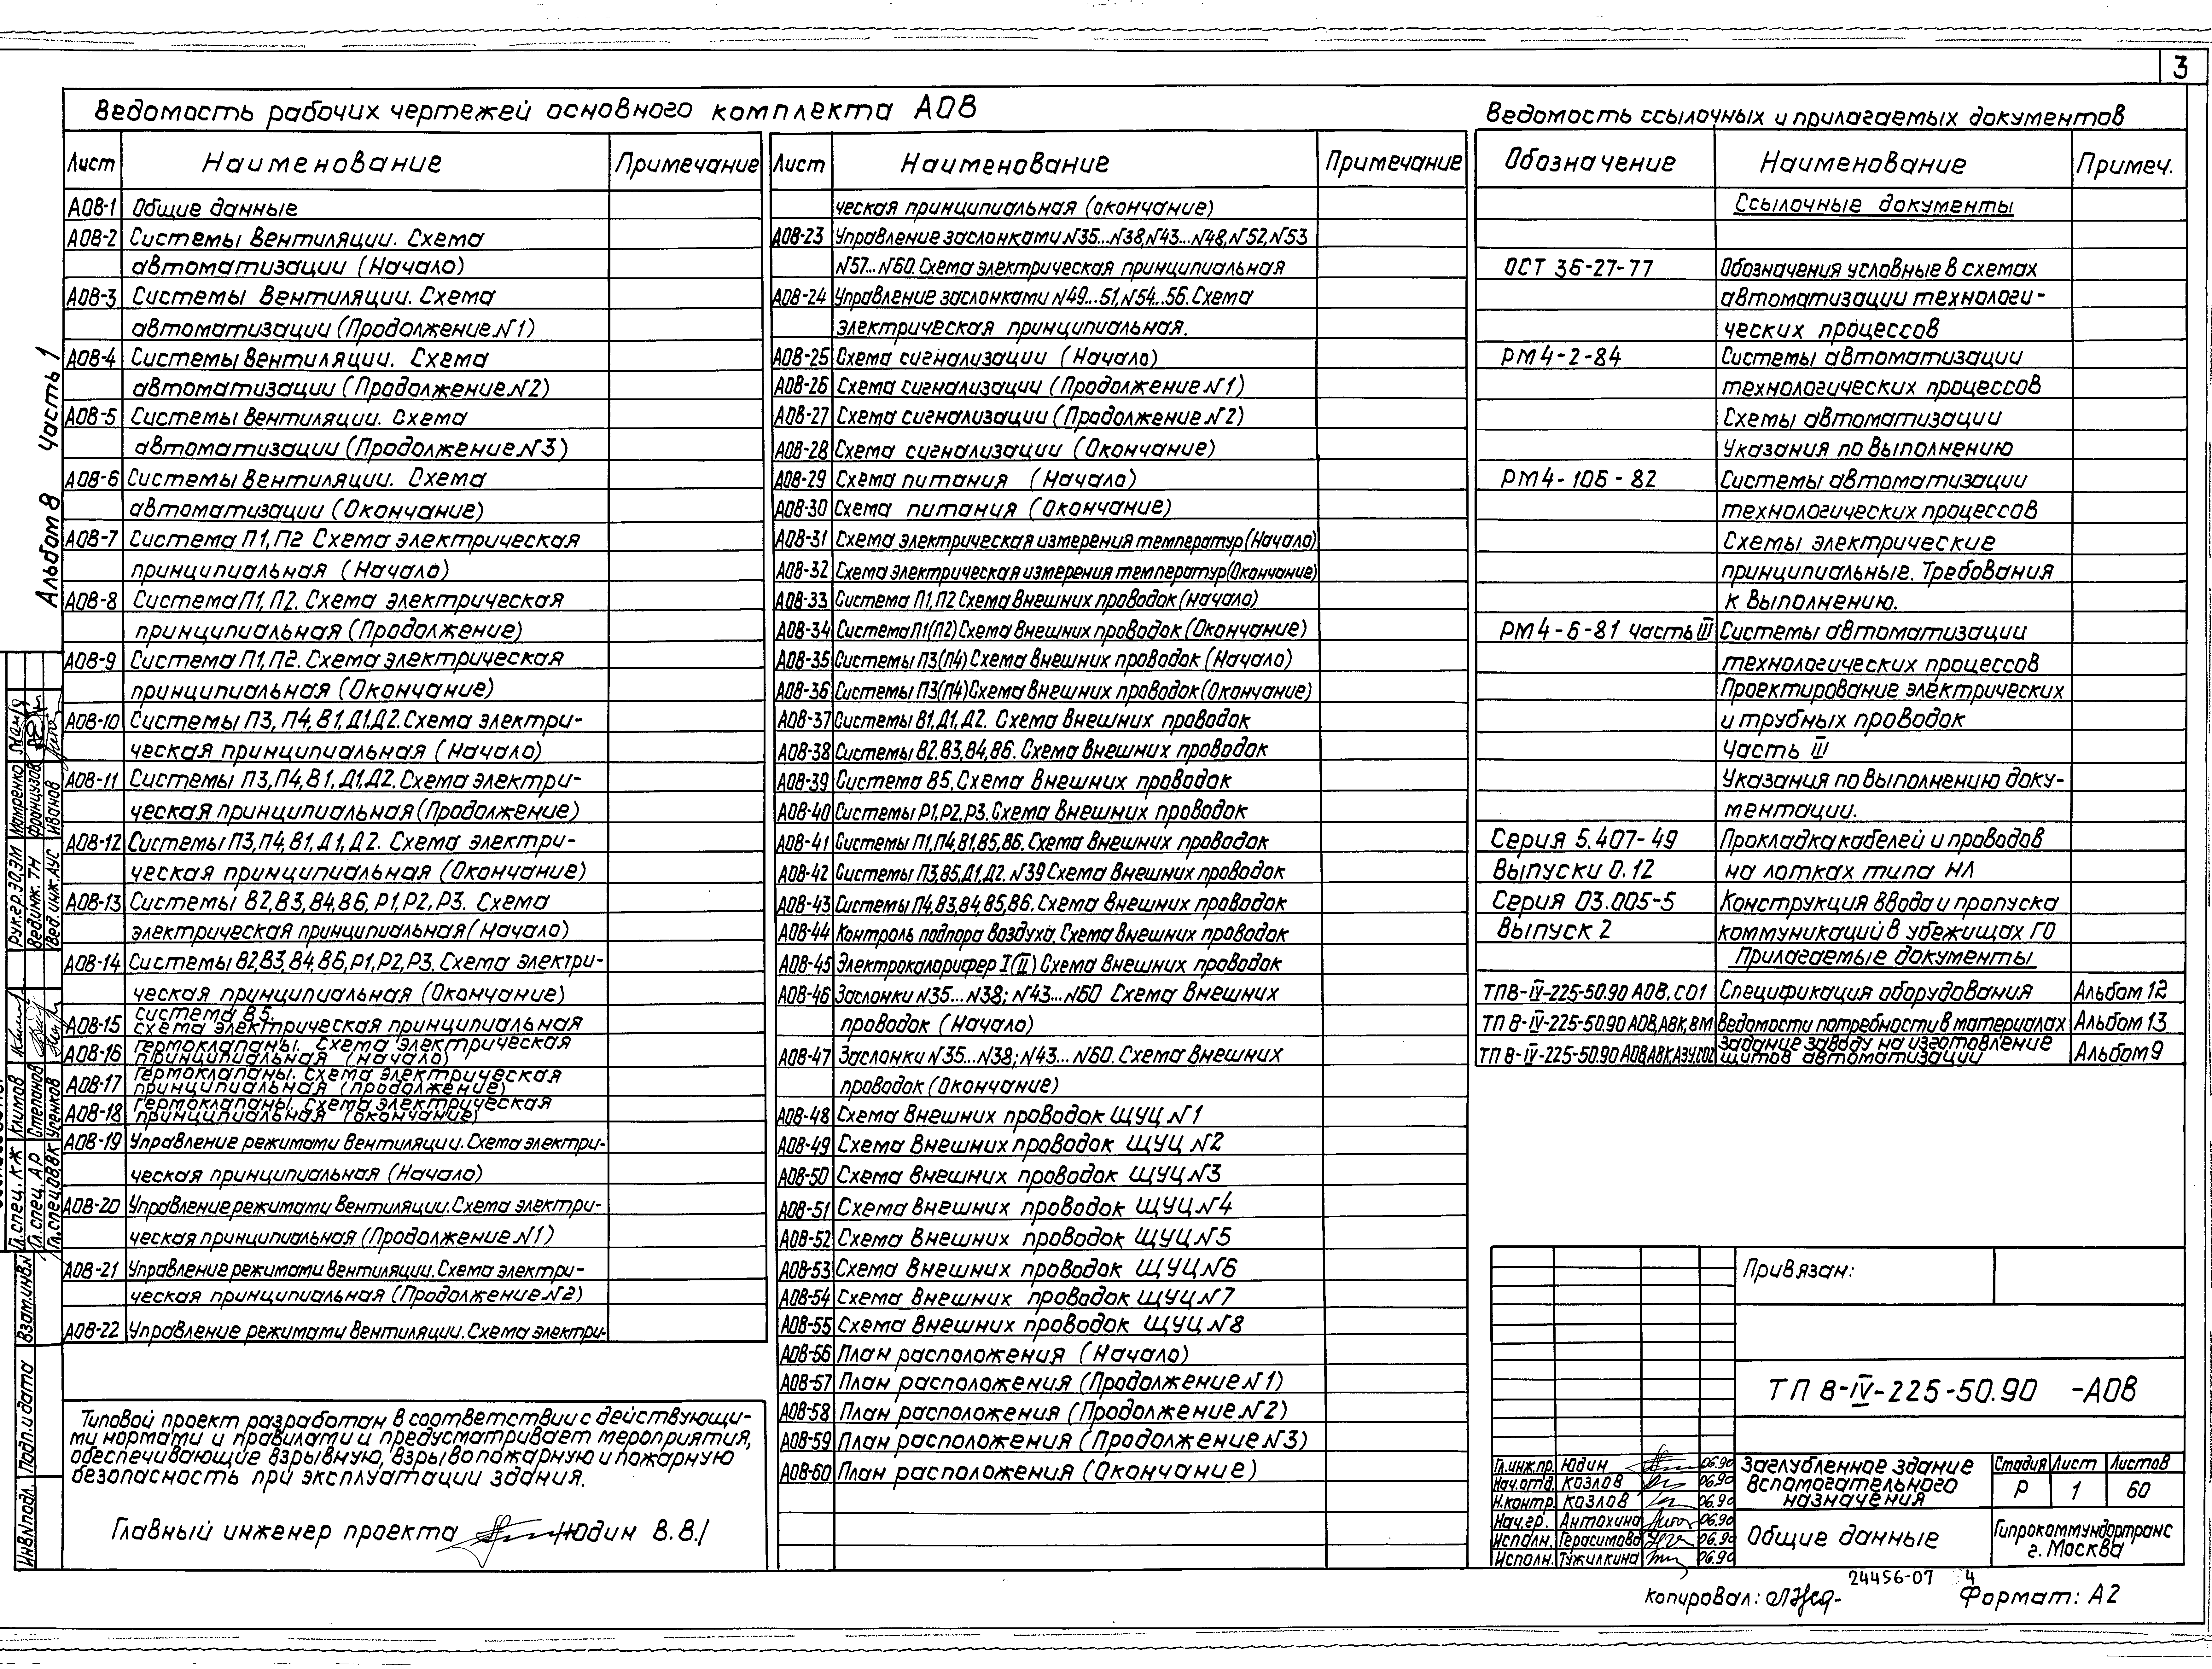 3
Ведомость рабочих чертежей основного комплекта АОВ
Лист Наименование Примечание
АОВ-1 Общие данные
АОВ-2 Системы вентиляции. Схема
автоматизации (Начало)
АОВ-3 Системы вентиляции. Схема
автоматизации (Продолжение N1)
АОВ-4 Системы вентиляции. Схема
автоматизации (Продолжение N2)
АОВ-5 Системы вентиляции. Схема
автоматизации (Продолжение N3)
АОВ-6 Системы вентиляции. Схема
автоматизации (Окончание)
АОВ-7 Система П1, П2 Схема электрическая
принципиальная (Начало)
АОВ-8 Система П1, П2. Схема электрическая
принципиальная (Продолжение)
АОВ-9 Система П1, П2. Схема электрическая
принципиальная (Окончание)
АОВ-10 Системы П3, П4, В1, Д1, Д2. Схема электри-
ческая принципиальная (Начало)
АОВ-11 Системы П3, П4, В1, Д1, Д2. Схема электри-
ческая принципиальная (Продолжение)
АОВ-12 Системы П3, П4, В1, Д1, Д2. Схема электри-
ческая принципиальная (Окончание)
АОВ-13 Системы В2, В3, В4, В6, Р1, Р2, Р3. Схема
электрическая принципиальная (Начало)
АОВ-14 Системы В2, В3, В4, В6, Р1, Р2, Р3. Схема электри-
ческая принципиальная (Окончание)
АОВ-15 система В5.
схема электрическая принципиальная
АОВ-16 гермоклапаны. Схема электрическая
принципиальная (начало)
АОВ-17 гермоклапаны. схема электрическая
принципиальная (продолжение)
АОВ-18 гермоклапаны. схема электрическая
принципиальная (окончание)
АОВ-19 Управление режимами вентиляции. Схема электри-
ческая принципиальная (Начало)
АОВ-20 Управление режимами вентиляции. Схема электри-
ческая принципиальная (Продолжение N1)
АОВ-21 Управление режимами вентиляции. Схема электри-
ческая принципиальная (Продолжение N2)
АОВ-22 Управление режимами вентиляции. Схема электри-
Типовой проект разработан в соответствии с действующи-
ми нормами и правилами и предусматривает мероприятия,
обеспечивающие взрывную, взрывопожарную и пожарную
безопасность при эксплуатации здания.
Главный инженер проекта /Юдин В.В./
Лист Наименование Примечание
ческая принципиальная (окончание)
АОВ-23 Управление заслонками N35...N38, N43...N48, N52, N53
N57...N60. Схема электрическая принципиальная
АОВ-24 Управление заслонками N49...51, N54...56. Схема
электрическая принципиальная.
АОВ-25 Схема сигнализации (Начало)
АОВ-26 Схема сигнализации (Продолжение N1)
АОВ-27 Схема сигнализации (Продолжение N2)
АОВ-28 Схема сигнализации (Окончание)
АОВ-29 Схема питания (Начало)
АОВ-30 Схема питания (Окончание)
АОВ-31 Схема электрическая измерения температур (Начало)
АОВ-32 Схема электрическая измерения температур (Окончание)
АОВ-33 Система П1, П2 Схема внешних проводок (начало)
АОВ-34 Система П1(П2) Схема внешних проводок (Окончание)
АОВ-35 Системы П3(П4) Схема внешних проводок (Начало)
АОВ-36 Системы П3(П4) Схема внешних проводок (Окончание)
АОВ-37 Системы В1, Д1, Д2. Схема внешних проводок
АОВ-38 Системы В2, В3, В4, В6. Схема внешних проводок
АОВ-39 Система В5. Схема внешних проводок
АОВ-40 Системы Р1, Р2, Р3. Схема внешних проводок
АОВ-41 Системы П1, П4, В1, В5, В6. Схема внешних проводок
АОВ-42 Системы П3, В5, Д1, Д2. N39 Схема внешних проводок
АОВ-43 Системы П4, В3, В4, В5, В6. Схема внешних проводок
АОВ-44 Контроль подпора воздуха. Схема внешних проводок
АОВ-45 Электрокалорифер I(II) Схема внешних проводок
АОВ-46 Заслонки N35...N38; N43...N60 Схема внешних
проводок (Начало)
АОВ-47 Заслонки N35...N38; N43...N60. Схема внешних
проводок (Окончание)
АОВ-48 Схема внешних проводок ЩУЦ N1
АОВ-49 Схема внешних проводок ЩУЦ N2
АОВ-50 Схема внешних проводок ЩУЦ N3
АОВ-51 Схема внешних проводок ЩУЦ N4
АОВ-52 Схема внешних проводок ЩУЦ N5
АОВ-53 Схема внешних проводок ЩУЦ N6
АОВ-54 Схема внешних проводок ЩУЦ N7
АОВ-55 Схема внешних проводок ЩУЦ N8
АОВ-56 План расположения (Начало)
АОВ-57 План расположения (Продолжение N1)
АОВ-58 План расположения (Продолжение N2)
АОВ-59 План расположения (Продолжение N3)
АОВ-60 План расположения (Окончание)
Ведомость ссылочных и прилагаемых документов
Обозначение Наименование Примеч.
Ссылочные документы
ОСТ 36-27-77 Обозначения условные в схемах
автоматизации технологи-
ческих процессов
РМ4-2-84 Системы автоматизации
технологических процессов
Схемы автоматизации
Указания по выполнению
РМ4-106-82 Системы автоматизации
технологических процессов
Схемы электрические
принципиальные. Требования
к выполнению.
РМ4-6-81 часть III Системы автоматизации
технологических процессов
Проектирование электрических
и трубных проводок
Часть III
Указания по выполнению доку-
ментации.
Серия 5.407-49 Прокладка кабелей и проводов
Выпуски 0.12 на лотках типа НЛ
Серия 03.005-5 Конструкция ввода и пропуска
Выпуск 2 коммуникаций в убежищах ГО
Прилагаемые документы
ТП8-IV-225-50.90 АОВ, СО1 Спецификация оборудования Альбом 12
ТП 8-IV-225-50.90 АОВ, АВК, ВМ Ведомости потребности в материалах Альбом 13
ТП 8-IV-225-50.90 АОВ, АВК, АЗУ, СО2 Задание заводу на изготовление
щитов автоматизации Альбом 9
Привязан:
ТП 8-IV-225-50.90 -АОВ
Гл.инж.пр. Юдин 06.90
Нач.отд. Козлов 06.90
Н.контр. Козлов 06.90
Нач.гр. Антохина 06.90
Исполн. Герасимова 06.90
Исполн. Тужилкина 06.90
Заглубленное здание
вспомогательного
назначения
Стадия Лист Листов
Р 1 60
Общие данные
Гипрокоммундортранс
г. Москва
24456-07 4
Копировал:
Формат: А2
Альбом 8 Часть 1
Рук.гр.ЭО,ЭМ Маиренко
Вед.инж. ТН Французов
Вед.инж. АУС Иванов
Гл.спец. КЖ Климов
Гл.спец. АР Степанов
Гл.спец.ОВ,ВК Усенков
Взам.инв.N
Подп. и дата
Инв.N подл.